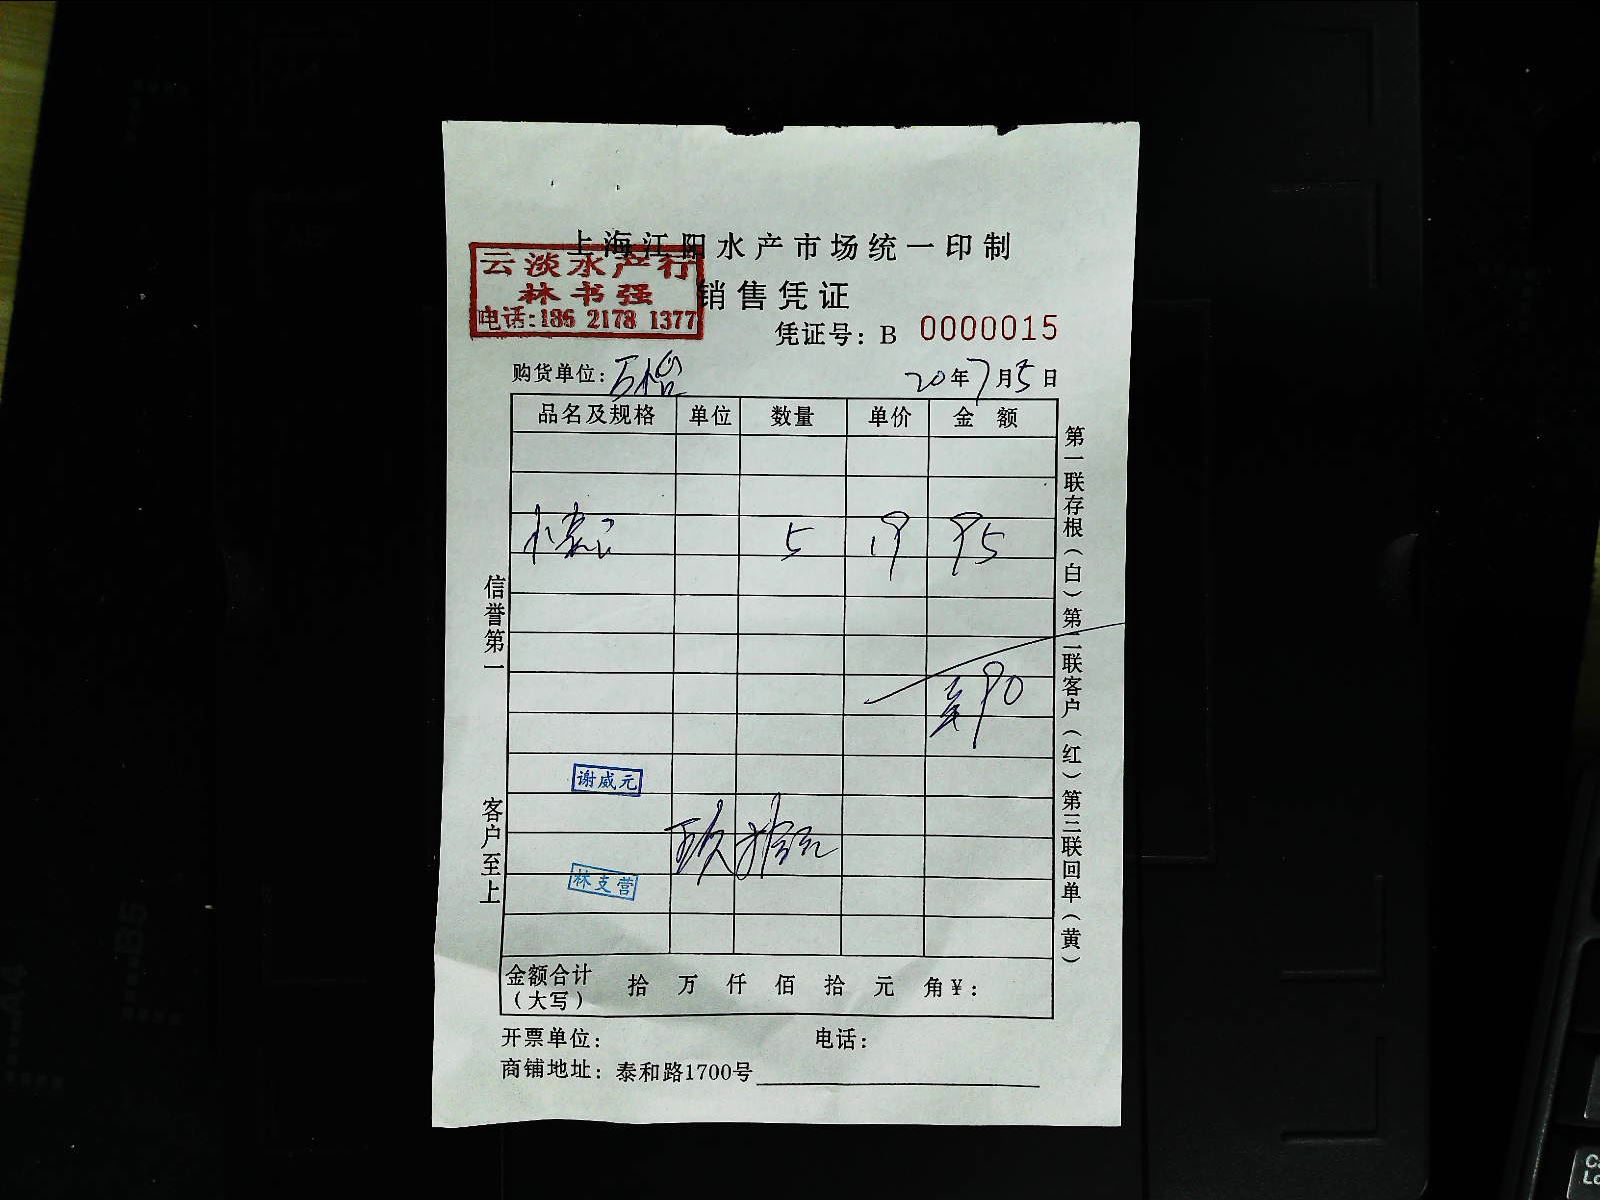 上海江阳水产市场统一印制
云淡水产行
林书强
电话:186 2178 1377
销售凭证
凭证号: B 0000015
购货单位: 万怡
20年7月5日
品名及规格 单位 数量 单价 金 额
5 19 95
90
谢威元
玖拾元
林支营
金额合计(大写) 拾 万 仟 佰 拾 元 角¥:
开票单位: 电话:
商铺地址: 泰和路1700号
信誉第一 客户至上
第一联存根(白)第二联客户(红)第三联回单(黄)
A4
B5